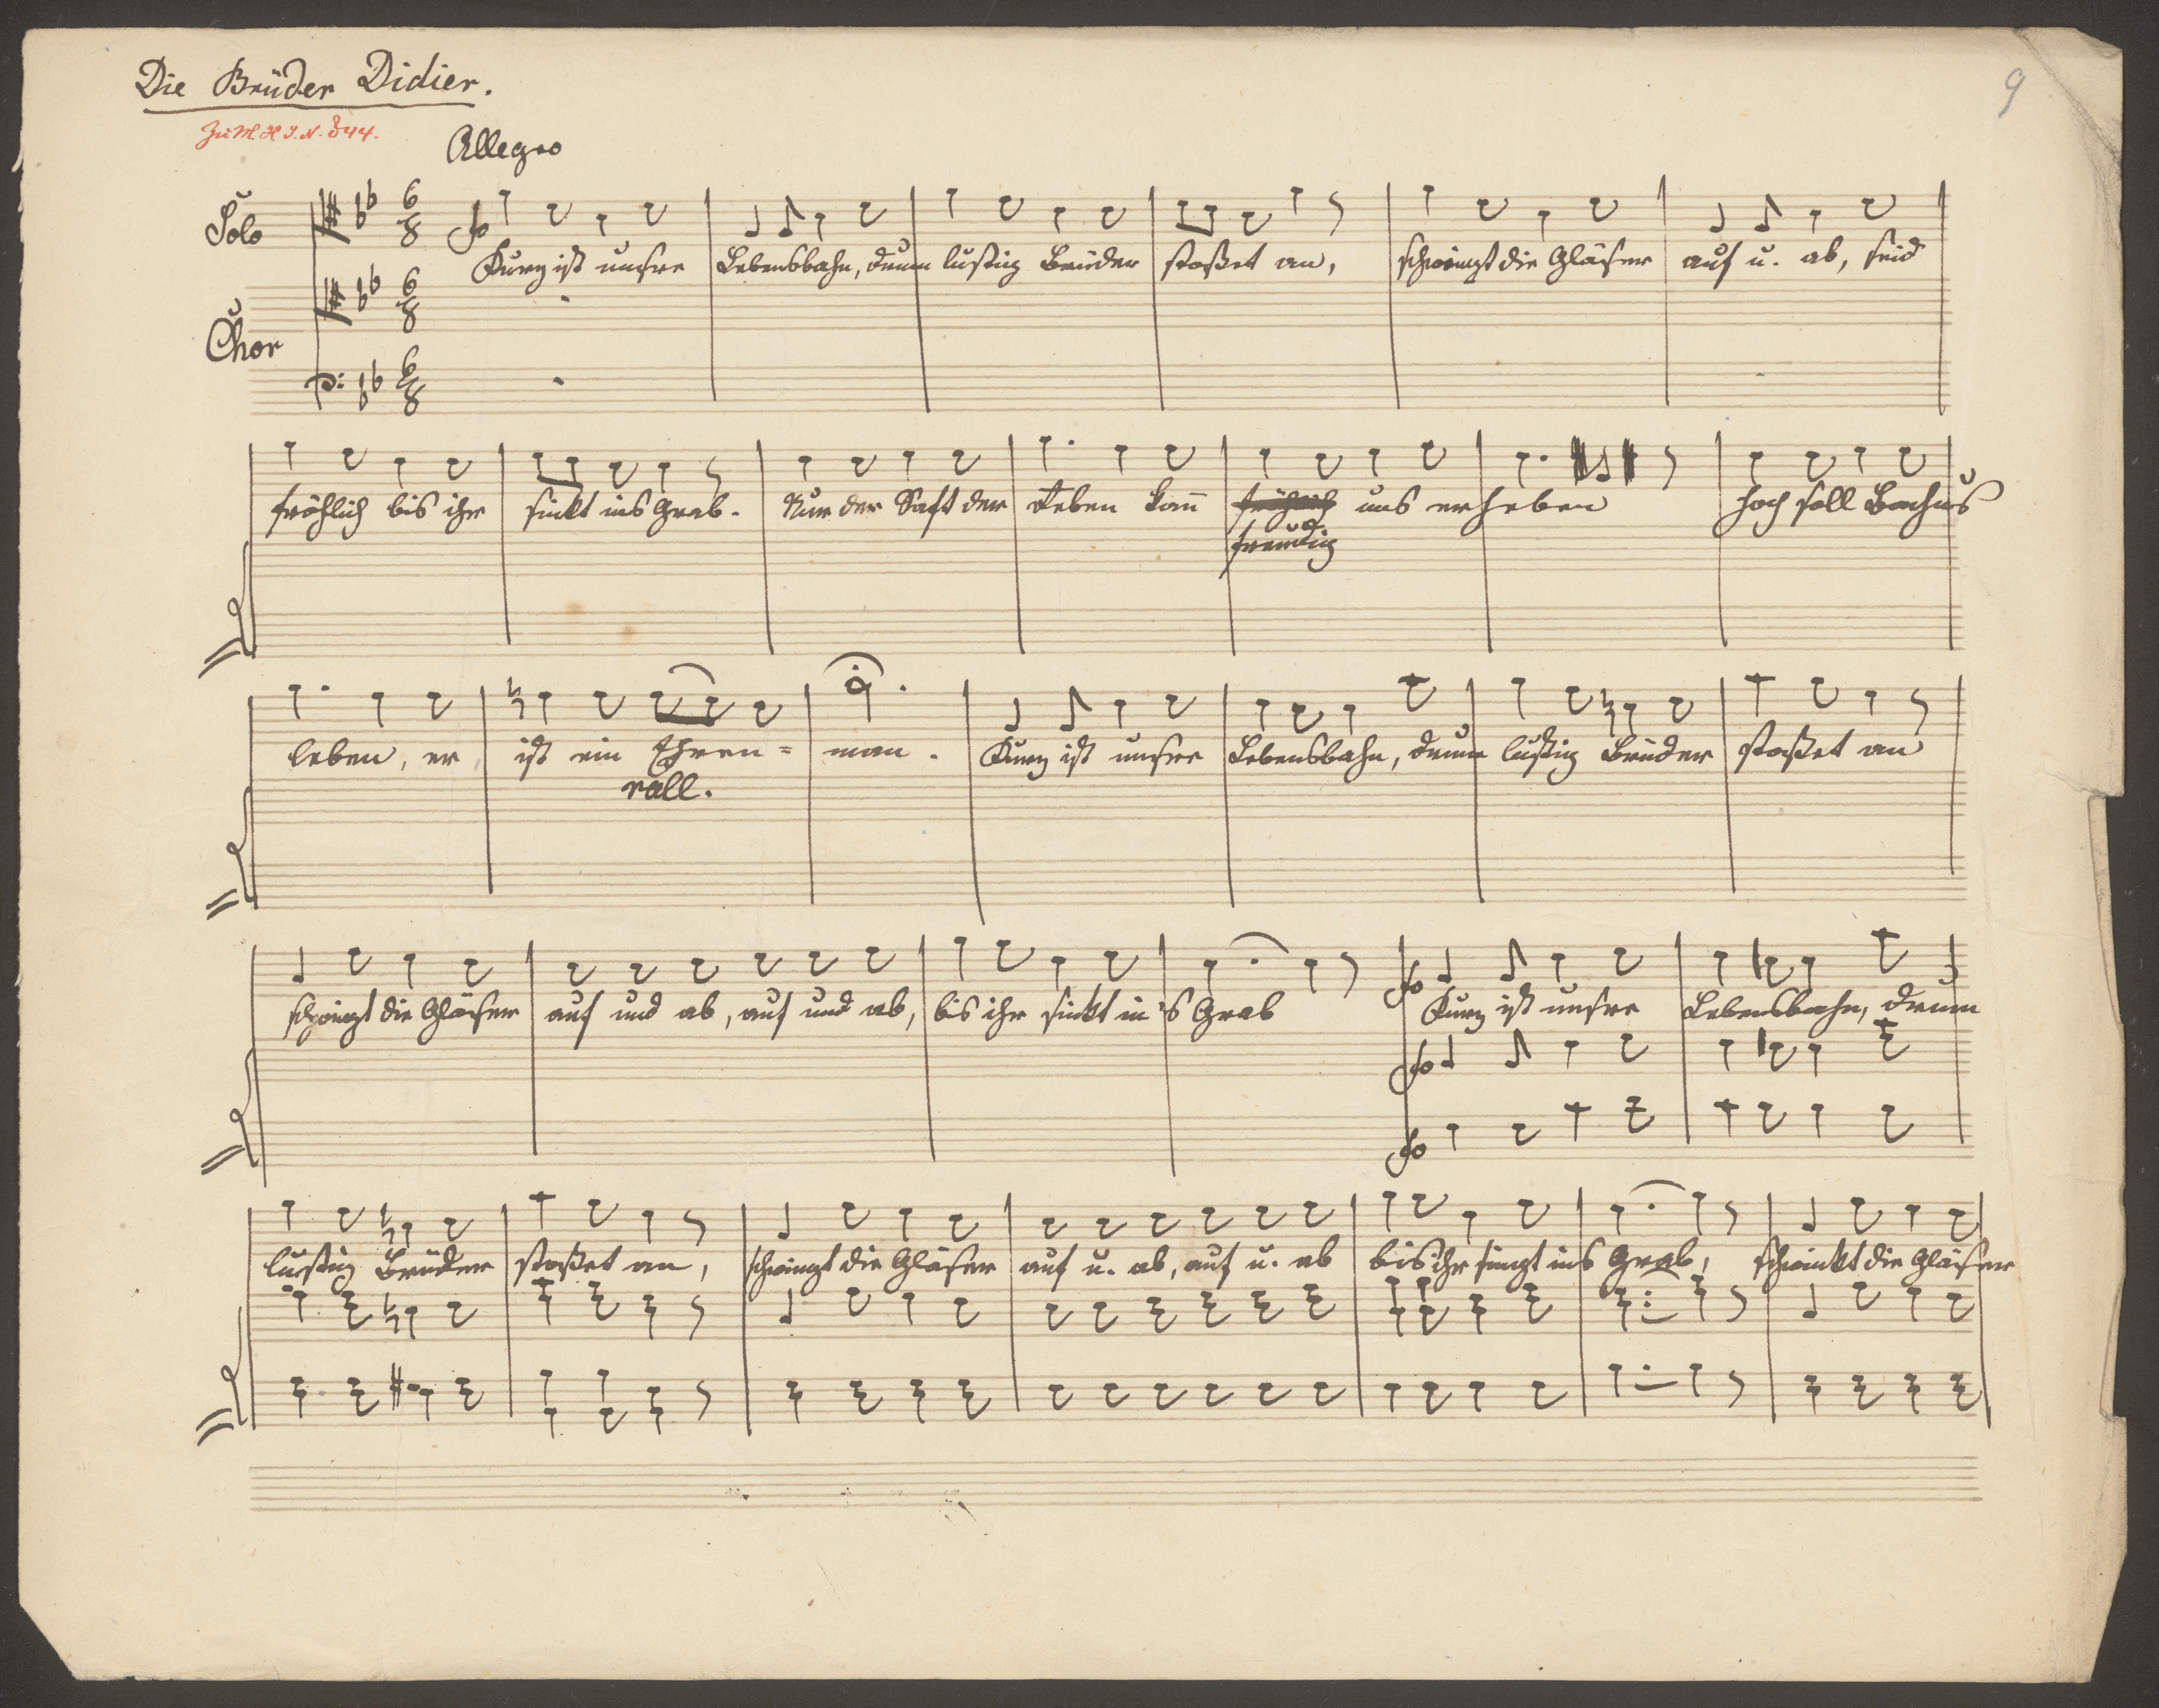 Die Brüder Didier.
9
Zu M H I. N. 844.
Allegro
Solo
Kurz ist unsre Lebensbahn, drum lustig Brüder stoßet an, schwingt die Gläser auf u. ab, seid
Chor
fröhlich bis ihr sinkt ins Grab. Nur der Saft der Reben kann uns erheben hoch soll Bachus
freudig
leben, er ist ein Ehren= man. Kurz ist unsre Lebensbahn, drum lustig Brüder stoßet an
rall.
schwingt die Gläser auf und ab, auf und ab, bis ihr sinkt in's Grab Kurz ist unsre Lebensbahn, drum
lustig Brüder stoßet an, schwingt die Gläser auf u. ab, auf u. ab bis ihr singt ins Grab, schwinkt die Gläser